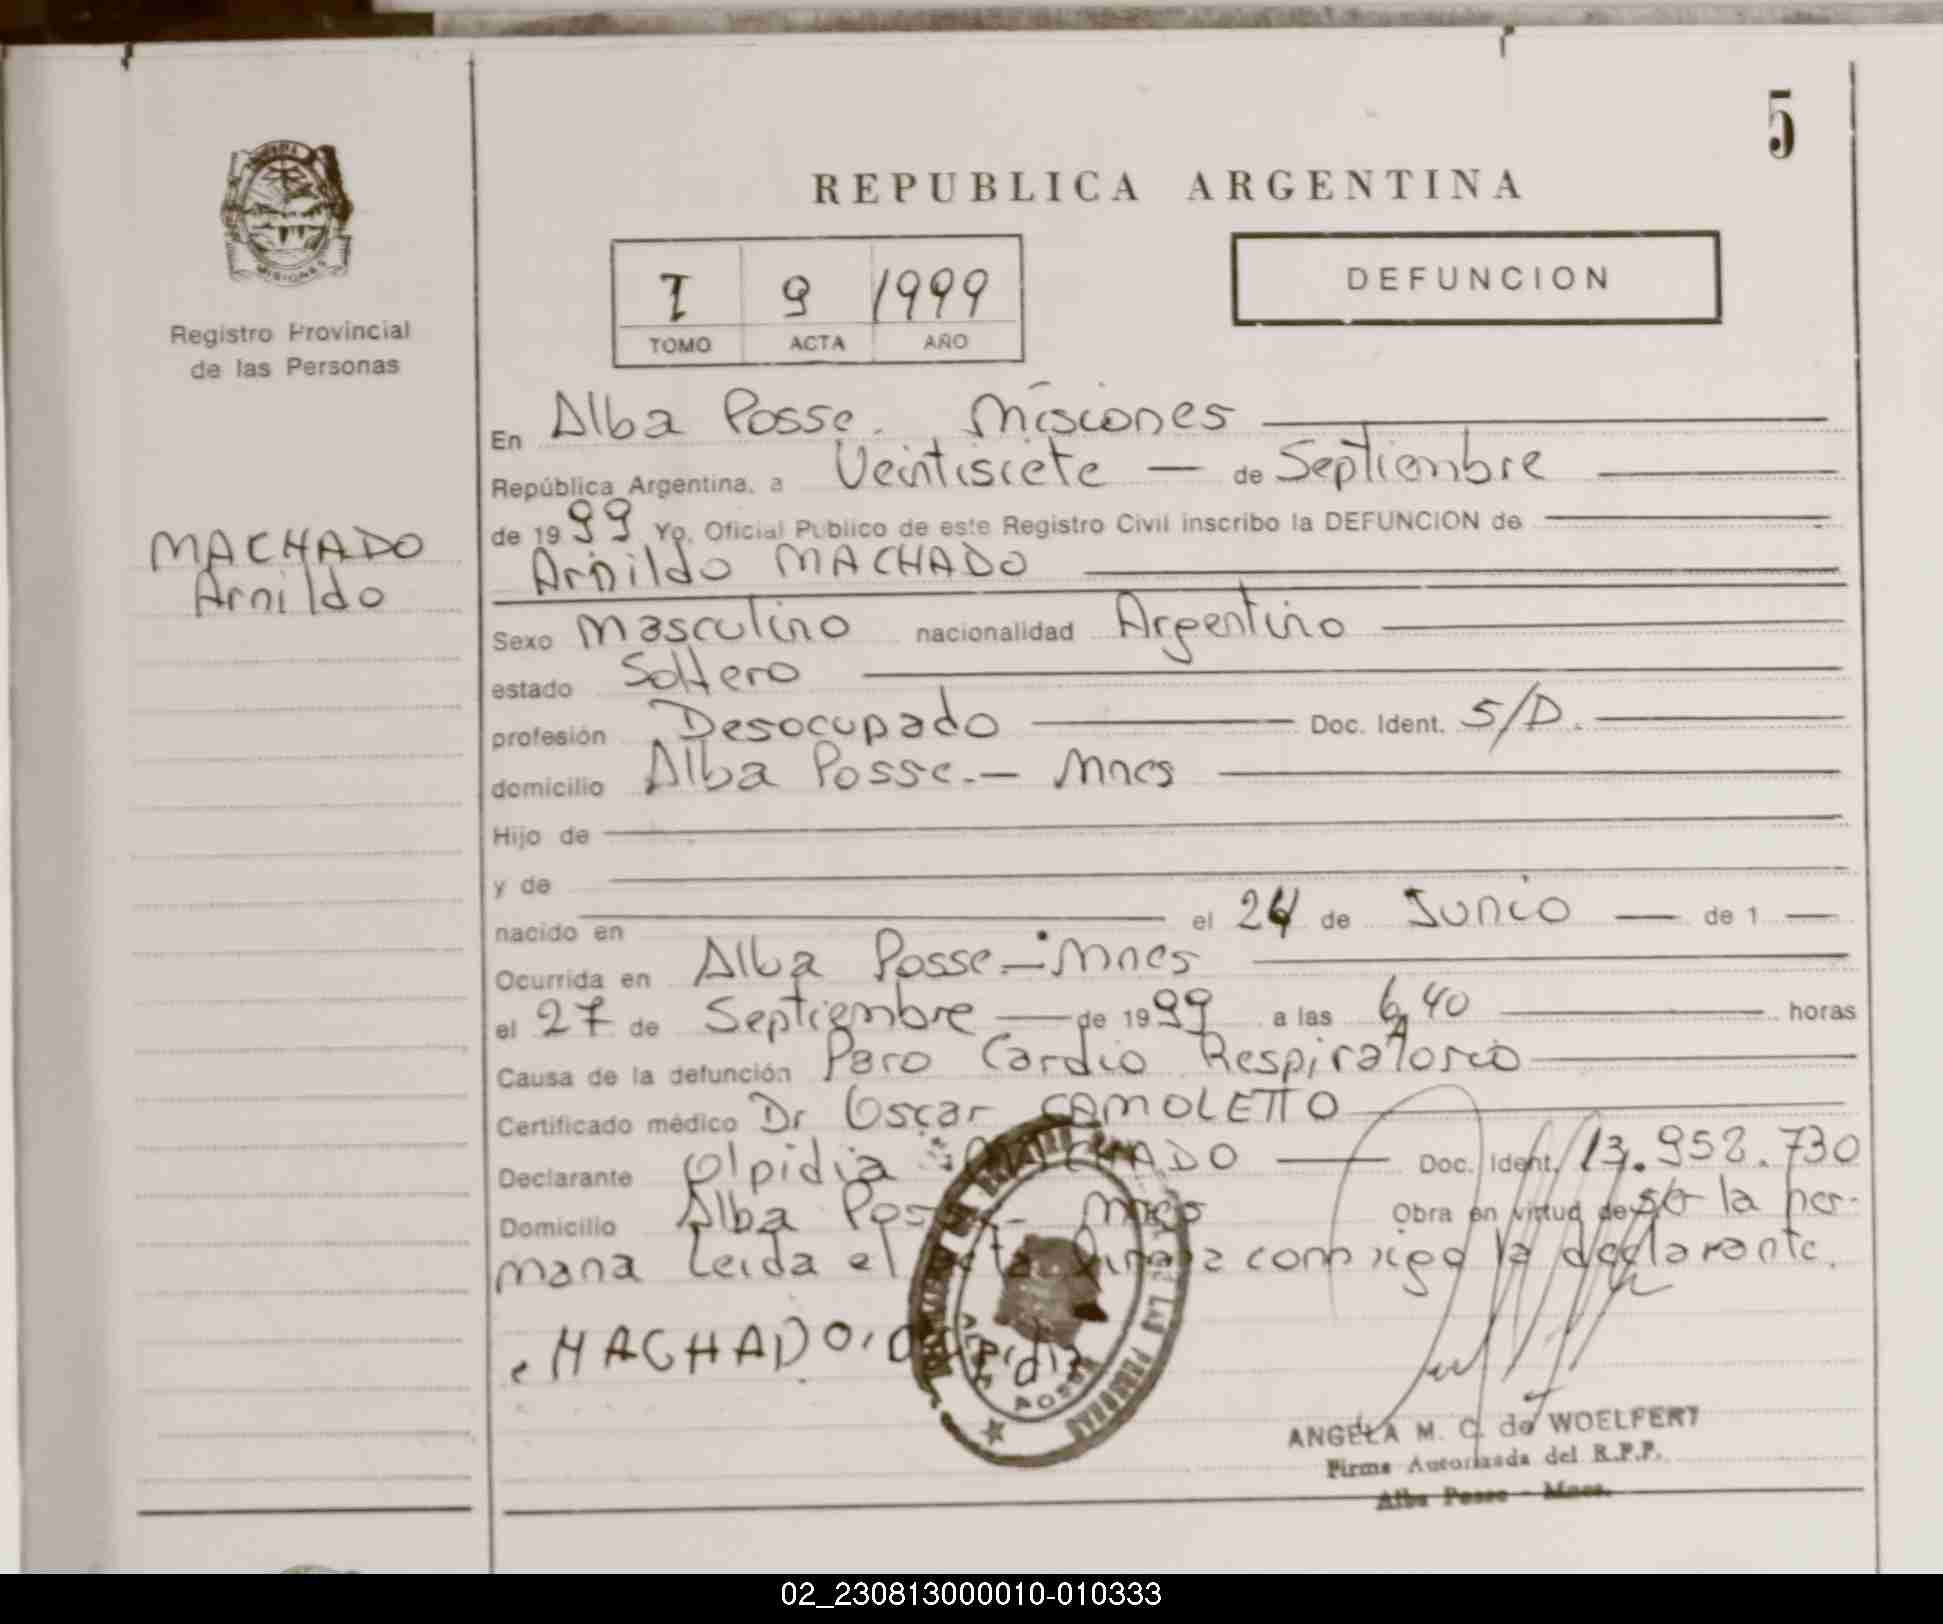 5
REPUBLICA ARGENTINA
DEFUNCION
I 9 1999
TOMO ACTA AÑO
MISIONES
Registro Provincial
de las Personas
MACHADO
Arnildo
En Alba Posse. Misiones
República Argentina, a Veintisiete — de Septiembre
de 1999 Yo, Oficial Público de este Registro Civil inscribo la DEFUNCION de
Arnildo MACHADO
Sexo Masculino nacionalidad Argentino
estado Soltero
profesión Desocupado Doc. Ident. S/D.
domicilio Alba Posse.- Mnes
Hijo de
y de
nacido en el 24 de Junio — de 1 —
Ocurrida en Alba Posse.- Mnes
el 27 de Septiembre — de 1999 a las 6,40 horas
Causa de la defunción Paro Cardio Respiratorio
Certificado médico Dr Oscar CAMOLETTO
Declarante Olpidia MACHADO — Doc. Ident. 13.952.730
Domicilio Alba Posse - Mnes Obra en virtud de la her-
mana Leida el acta firma conmigo la declarante.
MACHADO Olpidia
ALBA POSSE
DE LAS PERSONAS
ANGELA M. C. de WOELFERT
Firma Autorizada del R.P.P.
Alba Posse - Mnes.
02_230813000010-010333